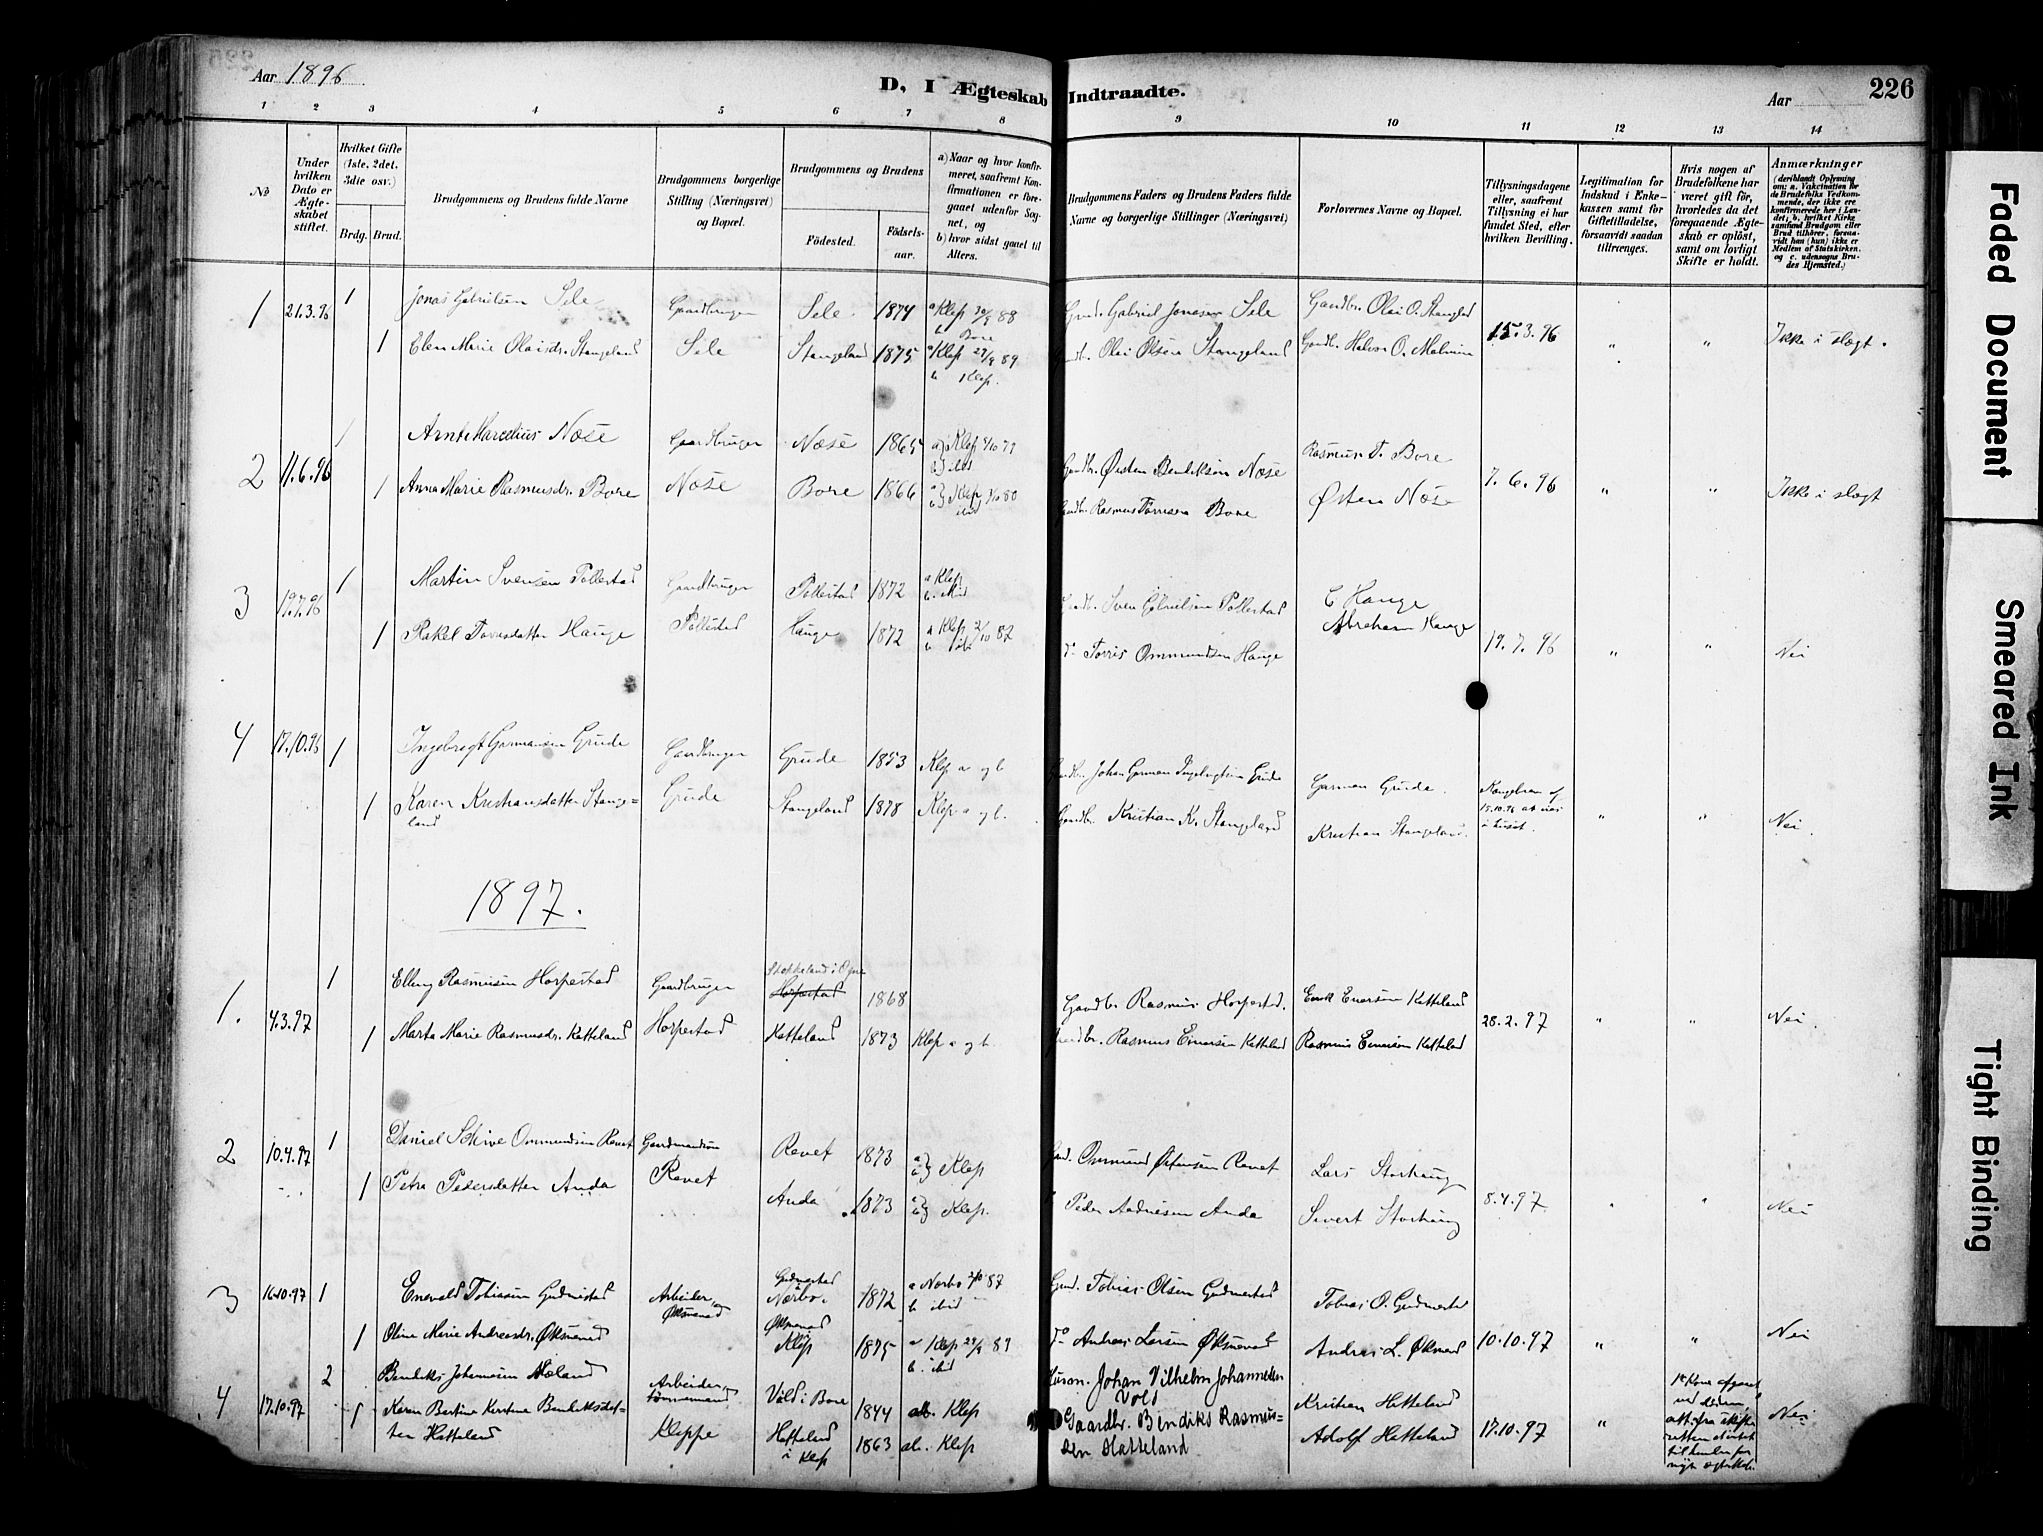 Aar 1896
D, I Ægteskab Indtraadte.
Aar
226
1 2 3 4 5 6 7 8 9 10 11 12 13 14
No
Under hvilken Dato er Ægteskabet stiftet.
Hvilket Gifte (1ste, 2det, 3die osv.)
Brdg. Brud.
Brudgommens og Brudens fulde Navne
Brudgommens borgerlige Stilling (Næringsvei) og Bopæl.
Brudgommens og Brudens
Fødested.
Fødselsaar.
a) Naar og hvor konfirmeret, saafremt Konfirmationen er foregaaet udenfor Sognet, og
b) hvor sidst gaaet til Alters.
Brudgommens Faders og Brudens Faders fulde Navne og borgerlige Stillinger (Næringsvei)
Forlovernes Navne og Bopæl.
Tillysningsdagene eller, saafremt Tillysning ei har fundet Sted, efter hvilken Bevilling.
Legitimation for Indskud i Enkekassen samt for Giftetilladelse, forsaavidt saadan tiltrænges.
Hvis nogen af Brudefolkene har været gift før, hvorledes da det foregaaende Ægteskab er opløst, samt om lovligt Skifte er holdt.
Anmærkninger
(deriblandt Oplysning om: a. Vakcination for de Brudefolks Vedkommende, der ikke ere konfirmerede her i Landet; b. hvilket Kirkesamfund Brudgom eller Brud tilhører, forsaavidt han (hun) ikke er Medlem af Statskirken, og c. udensogns Brudes Hjemsted.)
1 21.3.96 1 Jonas Gabrielsen Sele Gaardbruger Sele 1874 a Klep 88 b Bore Gabriel Jonasen Sele Gaardbr. Olai O. Stangeland
1 Elen Marie Olaisdr. Stangeland Sele Stangeland 1875 a Klep 89 b Klep. Olai Olsen Stangeland 15.3.96 " " Ikke i slægt.
2 11.6.96 1 Arnt Marcelius Næse Gaardbruger Næse 1865 a) Klep 5/10 79 b) ibid Gaardbr. Østen Bendiksen Næse Rasmus T. Bore
1 Anna Marie Rasmusdr. Bore Næse Bore 1866 a) Klep 3/10 80 b) ibid Gaardbr. Rasmus Tørresen Bore Østen Næse 7.6.96 " " Ikke i slægt
3 19.7.96 1 Martin Svensen Pollestad Gaardbruger Pollestad 1872 a Klep Sven Gabrielsen Pollestad E Hauge
1 Rakel Torrisdatter Hauge Pollestad Hauge 1872 a Klep 2/10 87 Torris Ommundsen Hauge Abraham Hauge 19.7.96 " " Nei
4 17.10.96 1 Ingebregt Gormansen Grude Gaardbruger Grude 1853 Klep a og b Gaardbr. Johan Gorman Ingebregtsen Grude Gorman Grude.
1 Karen Kristiansdatter Stangeland Grude Stangeland 1878 Klep a og b. Gaardbr. Kristian K. Stangeland Kristian Stangeland. 15.10.96 " " Nei.
1897.
1. 4.3.97 1 Elling Rasmusen Horpestad Gaardbruger Stokkeland i Ogne Horpestad 1868 Gaardbr. Rasmus Horpestad. Enok Enersen Katteland
1 Marta Marie Rasmusdr. Katteland Horpestad Katteland 1873 Klep a og b. Rasmus Enersen Katteland Rasmus Enersen Katteland 28.2.97 " " Nei.
2 10.4.97 1 Daniel Schive Ommundsen Revet Gaardmandssøn Revet 1873 a) b) Klep Ommund Østensen Revet Lars Storhaug
1 Petra Pedersdatter Anda Revet Anda 1873 a) b) Klep. Peder Andreasen Anda Sivert Storhaug 8.4.97 " " Nei
3 16.10.97 1 Enevald Tobiassen Gudmestad Arbeider, Øksnevad Gudmestad Nærbø. 1872 a Nærbø 2/10 87 b ibid Tobias Olsen Gudmestad Tobias O. Gudmestad
1 Oline Marie Andreasdr. Øksnevad Øksnevad Klep 1875 a Klep 89 b. ibid Andreas Larsen Øksnevad Andreas L. Øksnevad 10.10.97 " " Nei
4 17.10.97 2 Bendiks Johannesen Høland Arbeider, Tømmermand Vold i Bore 1844 ab. Klep Husm. Johan Vilhelm Johannesen Vold Kristian Hatteland
1 Karen Bertine Kirstine Bendiksdatter Hatteland Kleppe Hatteland i Klep 1863 ab. Klep Gaardbr. Bendiks Rasmussen Hatteland Adolf Hatteland 17.10.97 " Nei
Faded Document
Smeared Ink
Tight Binding